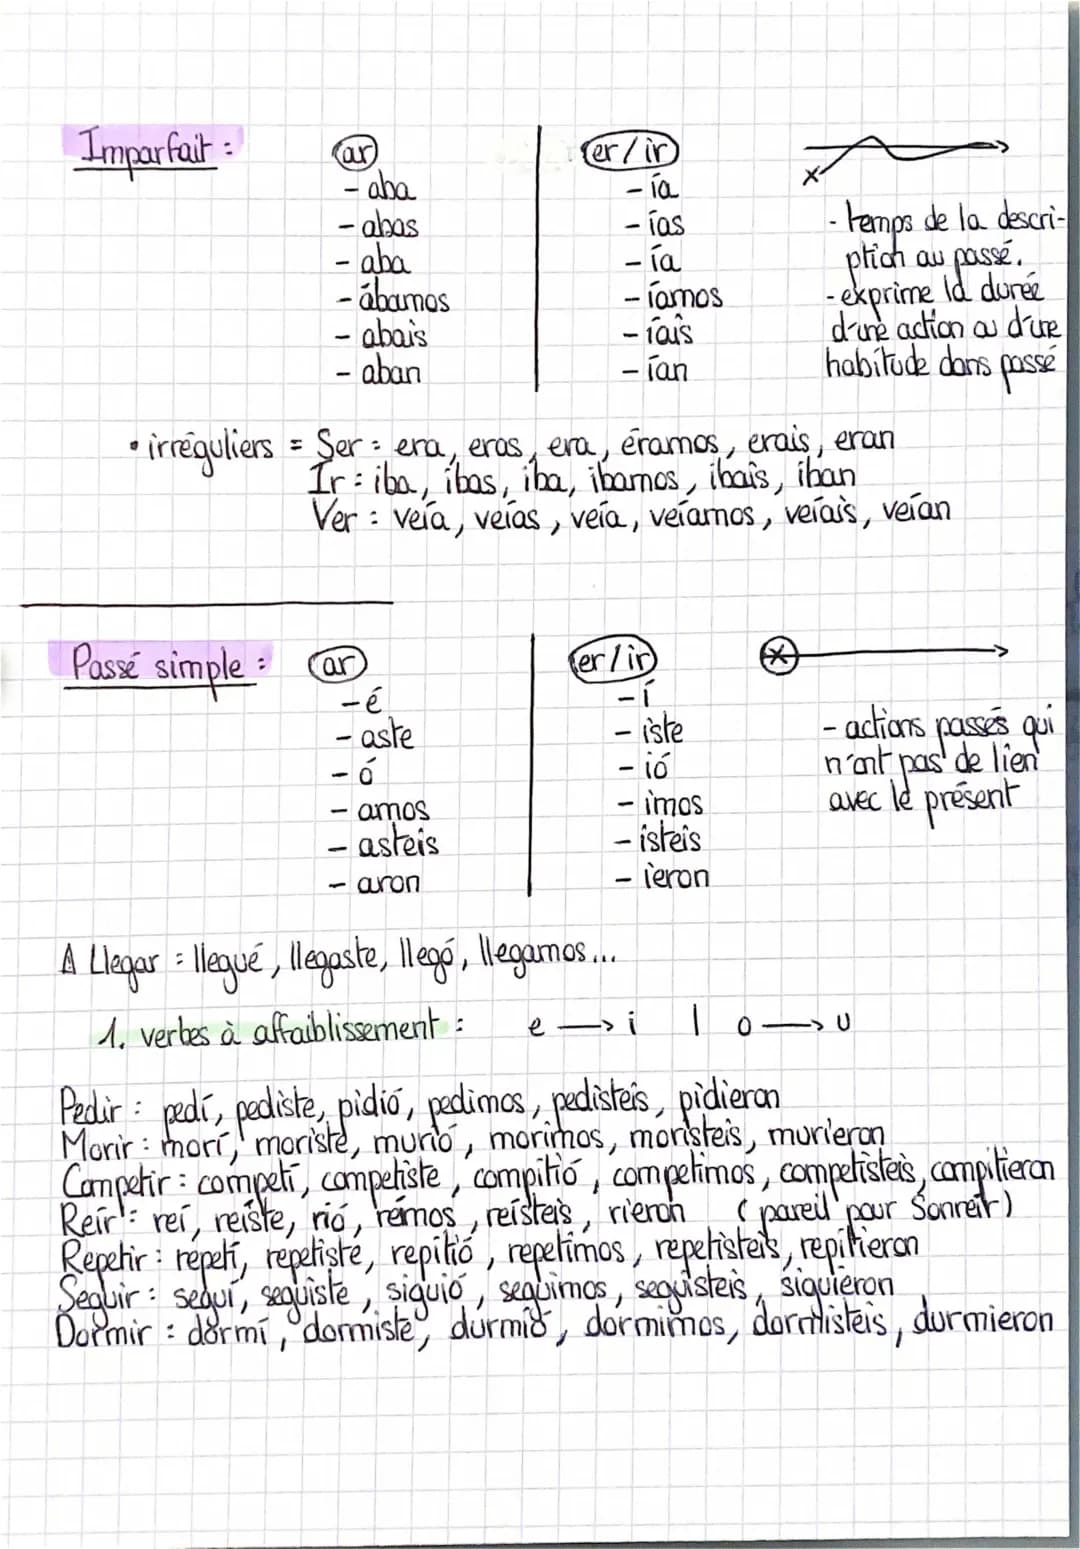 Imparfait :
ar
er / ir
- aba
- ía
- abas
- ías
- aba
- ía
- ábamos
- íamos
- abais
- íais
- aban
- ían
- temps de la descri-
ption au passé.
- exprime la durée
d'une action ou d'une
habitude dans passé
• irréguliers = Ser : era, eras, era, éramos, erais, eran
Ir : iba, ibas, iba, ibamos, ibais, iban
Ver : veía, veías, veía, veíamos, veíais, veían
Passé simple :
ar
er / ir
- é
- í
- aste
- iste
- ó
- ió
- amos
- imos
- asteis
- isteis
- aron
- ieron
- actions passés qui
n'ont pas de lien
avec le présent
Llegar : llegué, llegaste, llegó, llegamos...
1. verbes à affaiblissement : e → i | o → u
Pedir : pedí, pediste, pidió, pedimos, pedisteis, pidieron
Morir : morí, moriste, murió, morimos, moristeis, murieron
Competir : competí, competiste, compitió, competimos, competisteis, compitieron
Reír : reí, reíste, rió, rémos, reísteis, rieron (pareil pour Sonreír)
Repetir : repetí, repetiste, repitió, repetimos, repetisteis, repitieron
Seguir : seguí, seguiste, siguió, seguimos, seguisteis, siguieron
Dormir : dormí, dormiste, durmió, dormimos, dormisteis, durmieron